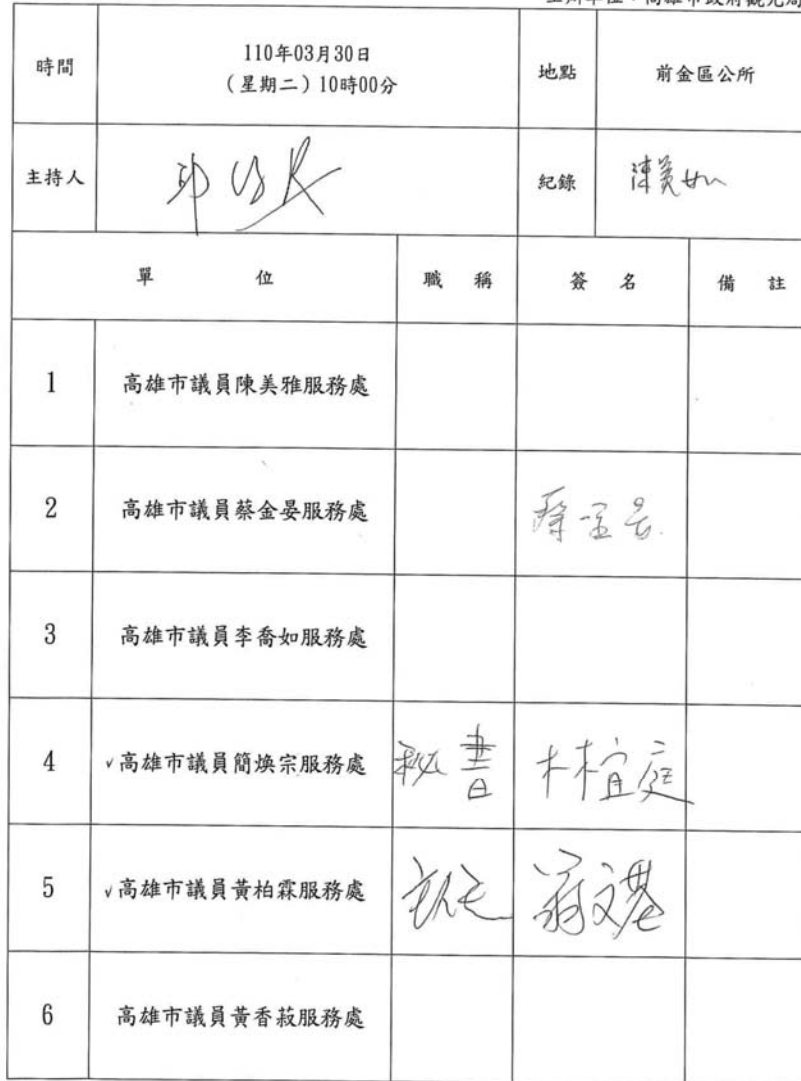 主辦單位：高雄市政府觀光局
時間 110年03月30日 地點 前金區公所
(星期二)10時00分
主持人 紀錄 陳美如
單 位 職 稱 簽 名 備 註
1 高雄市議員陳美雅服務處
2 高雄市議員蔡金晏服務處 蔡金晏
3 高雄市議員李喬如服務處
4 v高雄市議員簡煥宗服務處 秘書 林楦庭
5 v高雄市議員黃柏霖服務處 主任 翁文基
6 高雄市議員黃香菽服務處